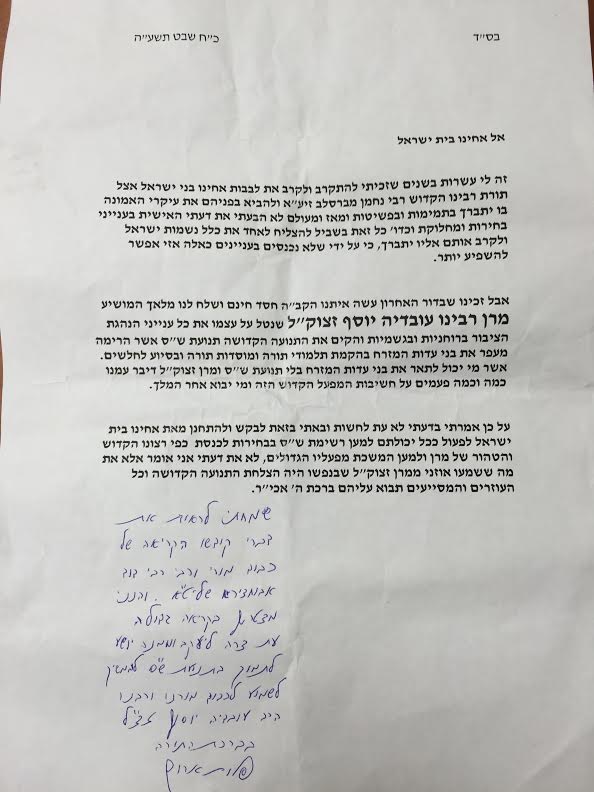 בס״ד
כ״ח שבט תשע״ה
אל אחינו בית ישראל
זה לי עשרות בשנים שזכיתי להתקרב ולקרב את לבבות אחינו בני ישראל אצל
תורת רבינו הקדוש רבי נחמן מברסלב זיע״א ולהביא בפניהם את עיקרי האמונה
בו יתברך בתמימות ובפשיטות ומאז ומעולם לא הבעתי את דעתי האישית בענייני
בחירות ומחלוקת וכדו׳ כל זאת בשביל להצליח לאחד את כלל נשמות ישראל
ולקרב אותם אליו יתברך, כי על ידי שלא נכנסים בעניינים כאלה אזי אפשר
להשפיע יותר.
אבל זכינו שבדור האחרון עשה איתנו הקב״ה חסד חינם ושלח לנו מלאך המושיע
מרן רבינו עובדיה יוסף זצוק״ל שנטל על עצמו את כל ענייני הנהגת
הציבור ברוחניות ובגשמיות והקים את התנועה הקדושה תנועת ש״ס אשר הרימה
מעפר את בני עדות המזרח בהקמת תלמודי תורה ומוסדות תורה ובסיוע לחלשים.
אשר מי יכול לתאר את בני עדות המזרח בלי תנועת ש״ס ומרן זצוק״ל דיבר עמנו
כמה וכמה פעמים על חשיבות המפעל הקדוש הזה ומי יבוא אחר המלך.
על כן אמרתי בדעתי לא עת לחשות ובאתי בזאת לבקש ולהתחנן מאת אחינו בית
ישראל לפעול ככל יכולתם למען רשימת ש״ס בבחירות לכנסת כפי רצונו הקדוש
והטהור של מרן ולמען המשכת מפעליו הגדולים, לא את דעתי אני אומר אלא את
מה ששמעו אוזני ממרן זצוק״ל שבנפשו היה הצלחת התנועה הקדושה וכל
העוזרים והמסייעים תבוא עליהם ברכת ה׳ אכי״ר.
שמחתי לראות את
דברי קודשו הקריאה של
כבוד מורי ורבי רבי דוד
אבוחצירא שליט״א. והנני
מצטרף בקריאה גדולה
עת צרה ליעקב וממנה יושע
לתמוך בתנועת ש״ס
לשמוע לכבוד מורנו ורבנו
הרב עובדיה יוסף זצ״ל
בברכת התורה
שלום ארוש